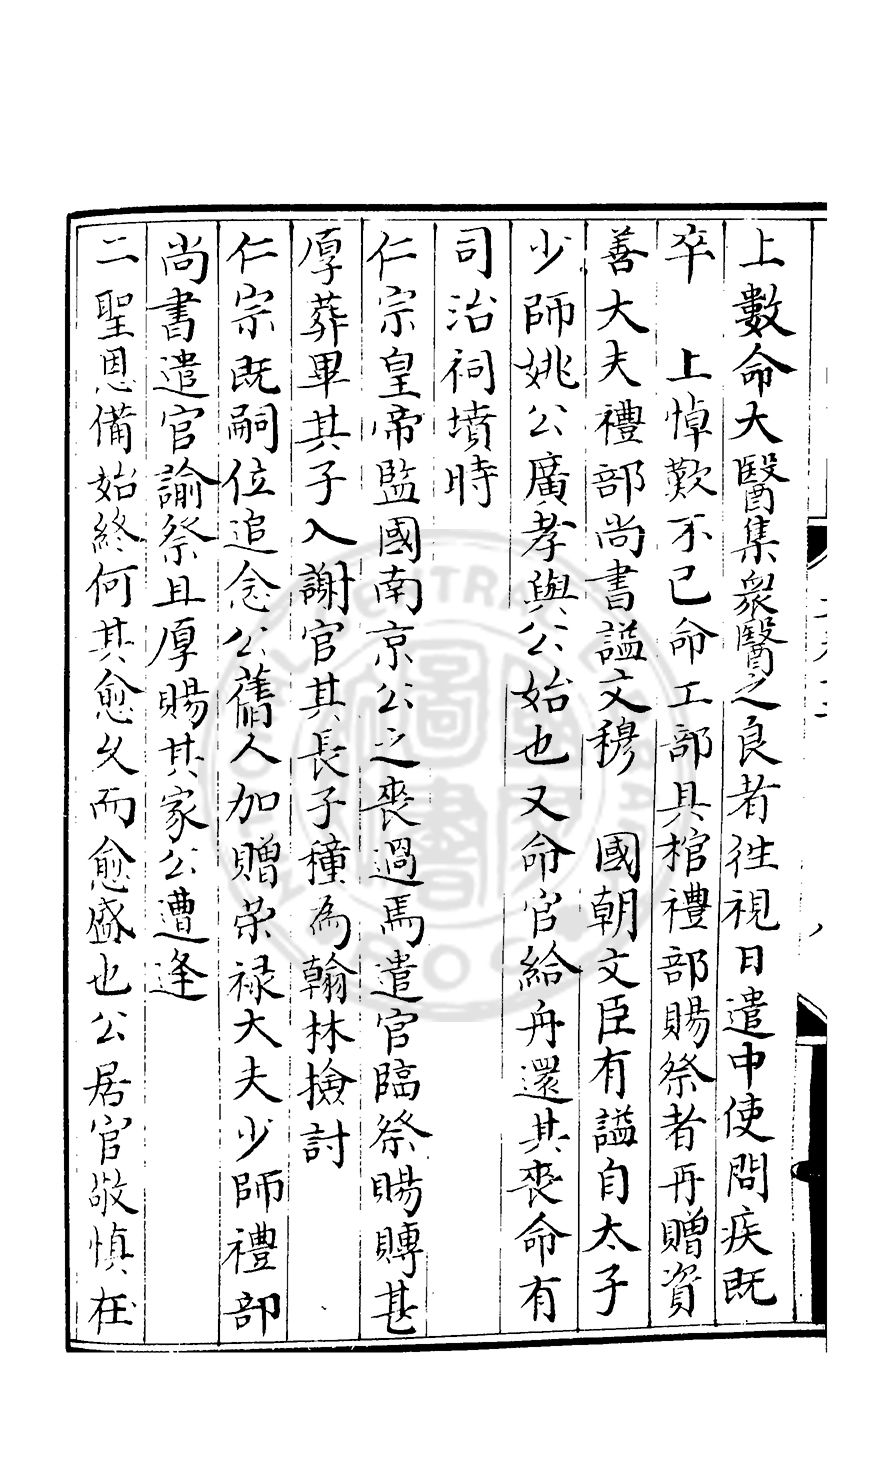 上數命大醫集衆醫之良者徃視日遣中使問疾既
卒　上悼歎不已命工部具棺禮部賜祭者再贈資
善大夫禮部尚書謚文穆　國朝文臣有謚自太子
少師姚公廣孝與公始也又命官給舟還其喪命有
司治祠墳時
仁宗皇帝監國南京公之喪過焉遣官臨祭賜賻甚
厚葬畢其子入謝官其長子穜為翰林撿討
仁宗既嗣位追念公舊人加贈榮禄大夫少師禮部
尚書遣官諭祭且厚賜其家公遭逢
二聖恩備始終何其愈久而愈盛也公居官敬慎在